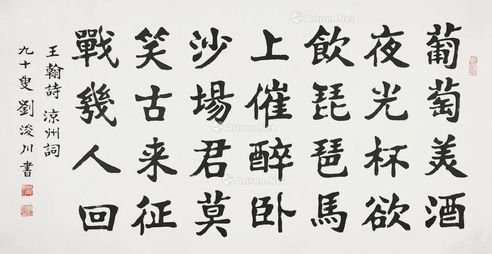 葡萄美酒
夜光杯欲
飲琵琶馬
上催醉卧
沙場君莫
笑古来征
戰幾人回
王翰詩 涼州詞
九十叟劉浚川書
Artron.Net